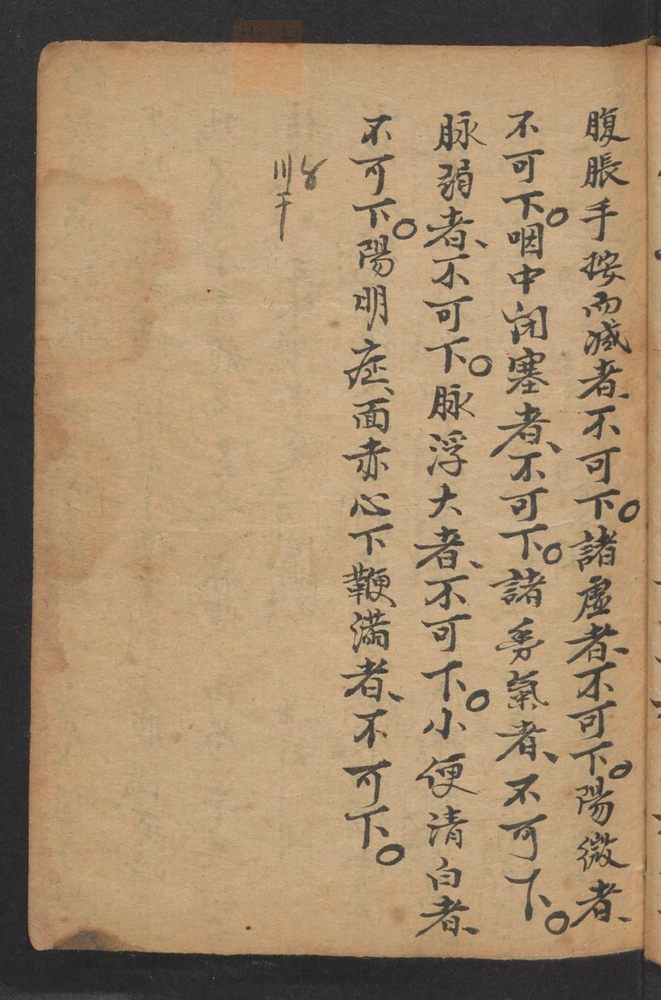 腹脹手按而減者、不可下。諸虛者、不可下。陽微者、
不可下。咽中闭塞者、不可下。諸芴氣者、不可下。
脉弱者、不可下。脉浮大者、不可下。小便清白者、
不可下。陽明症、面赤心下鞕满者、不可下。